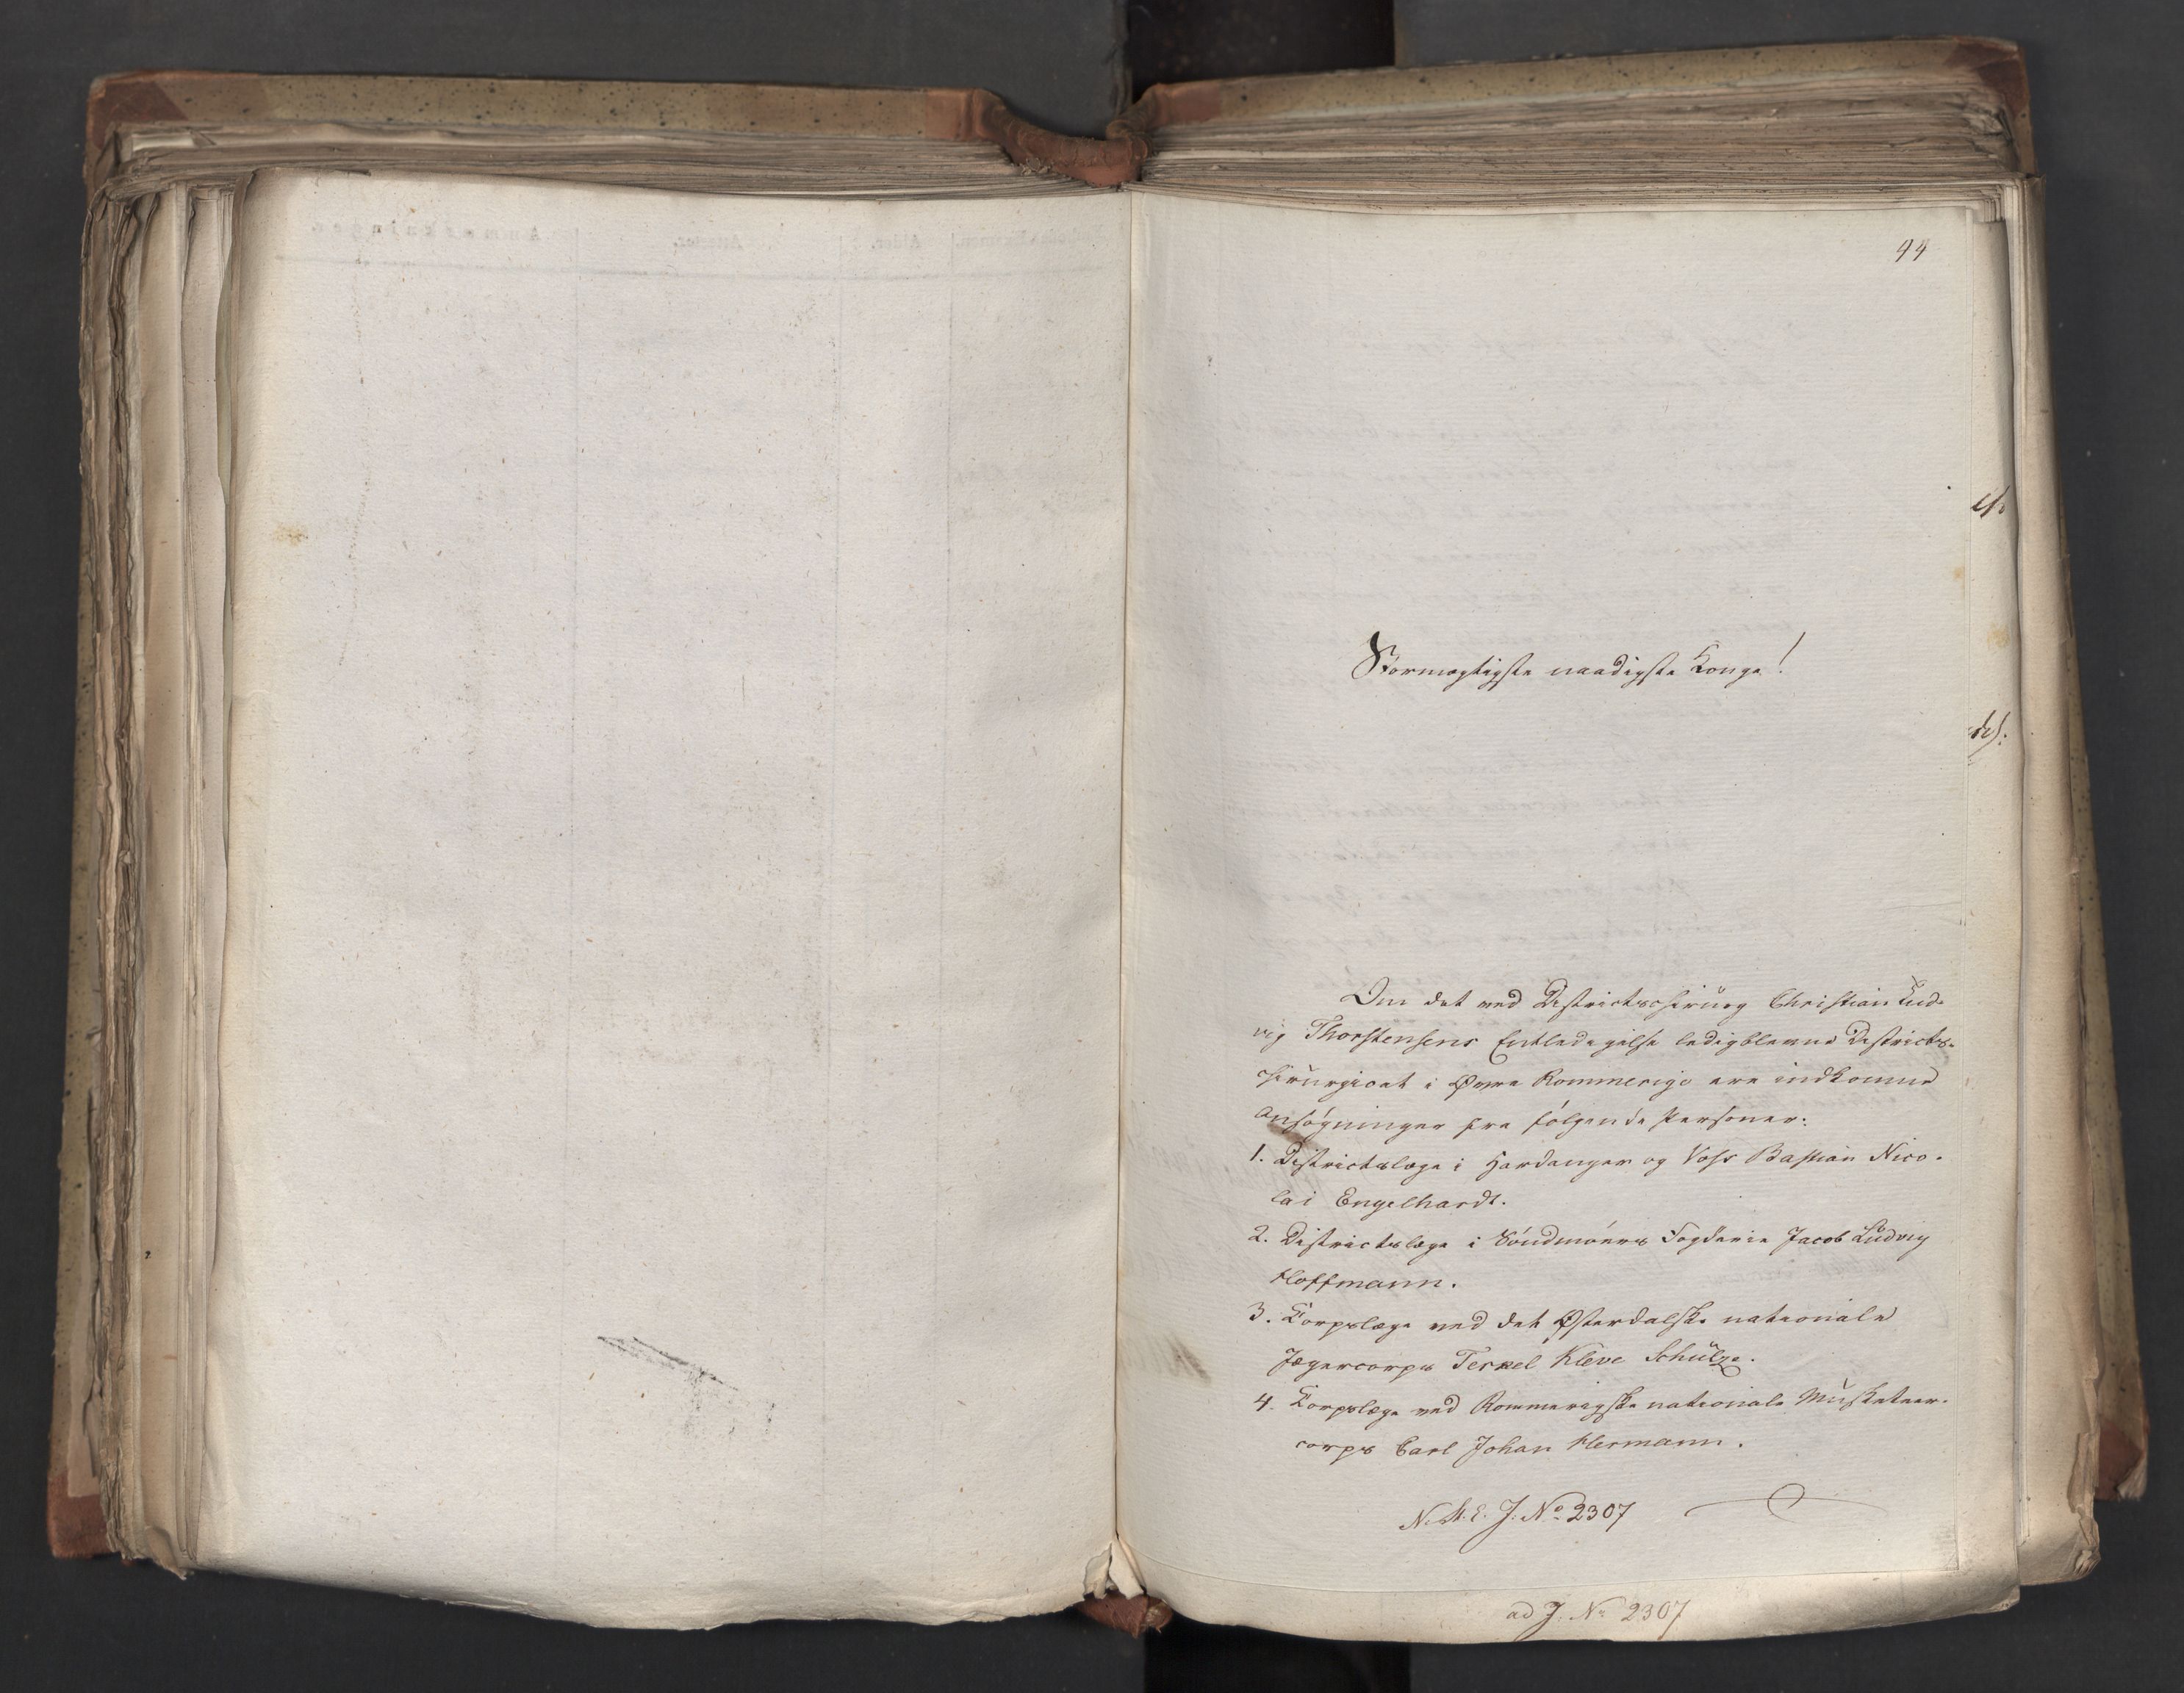 94
Stormægtigste naadigste Konge!
Om det ved Districtschirurg Christian Lud-
vig Thorstensens Entledigelse ledigblevne Districts-
chirurgicat i Øvre Rommerige ere indkomne
Ansøgninger fra følgende Personer:
1. Districtslæge i Hardanger og Voss Bastian Nico-
lai Engelhardt.
2. Districtslæge i Söndmöers Fogderie Jacob Ludvig
Hoffmann.
3. Corpslæge ved det Østerdalske nationale
Jægercorps Terkel Kleve Schulze.
4. Corpslæge ved Rommerigske nationale Musketeer-
corps Carl Johan Hermann.
J: No 2307
ad J. No 2307